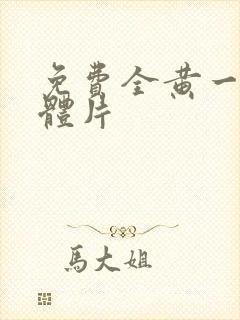 免費全黄一
體片
馬大姐